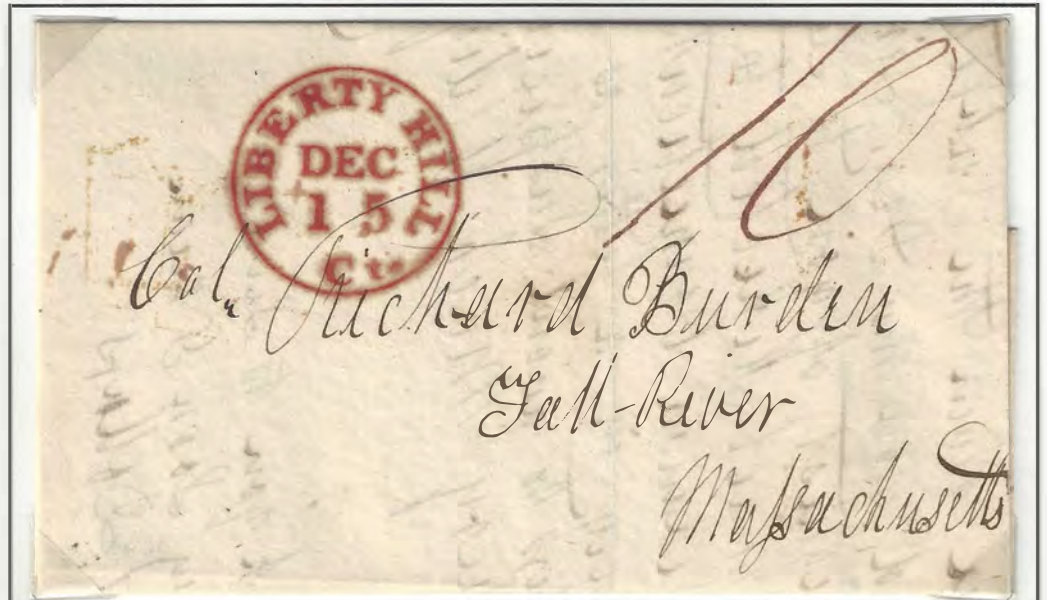 LIBERTY HILL
DEC
15
Ct.
10
Col. Richard Burden
Fall-River
Massachusetts